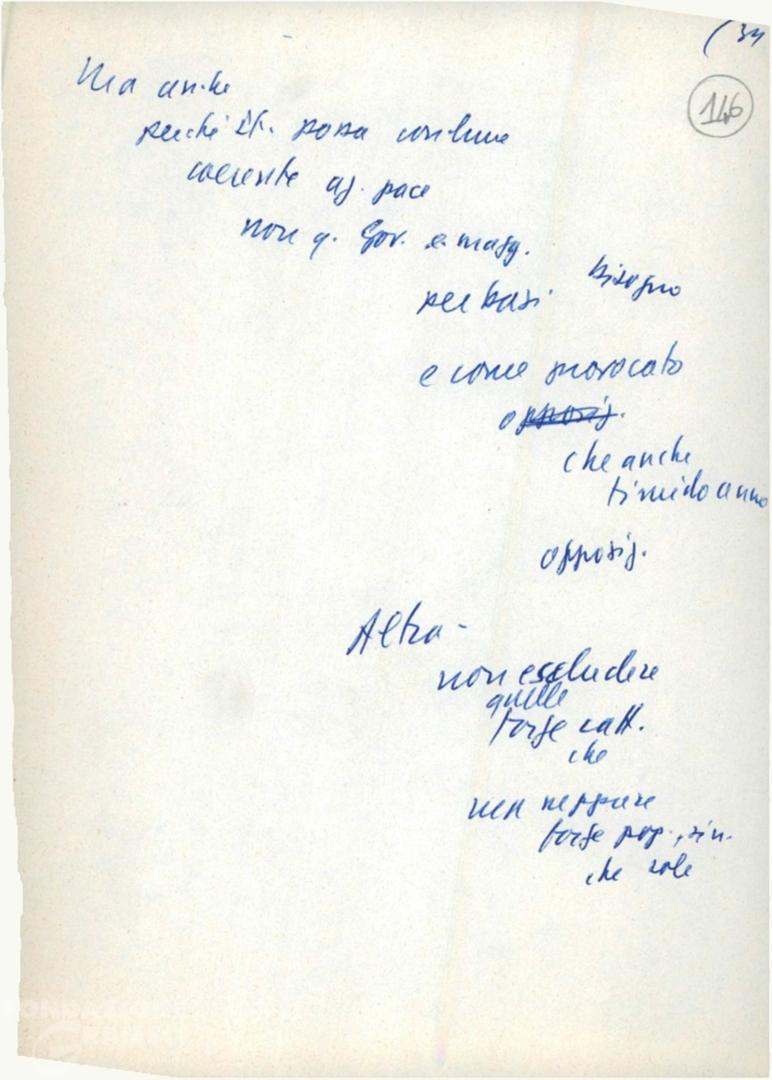 (34
146
Ma anche
perché It. possa condurre
coerente az. pace
non q. Gov. e magg.
bisogno
per basi
e come provocato
opposiz.
che anche
timido anno
opposiz.
Altra -
non escludere
quelle
forze catt.
che
neppure
forze pop., sin.
che sole
FONDAZIONE